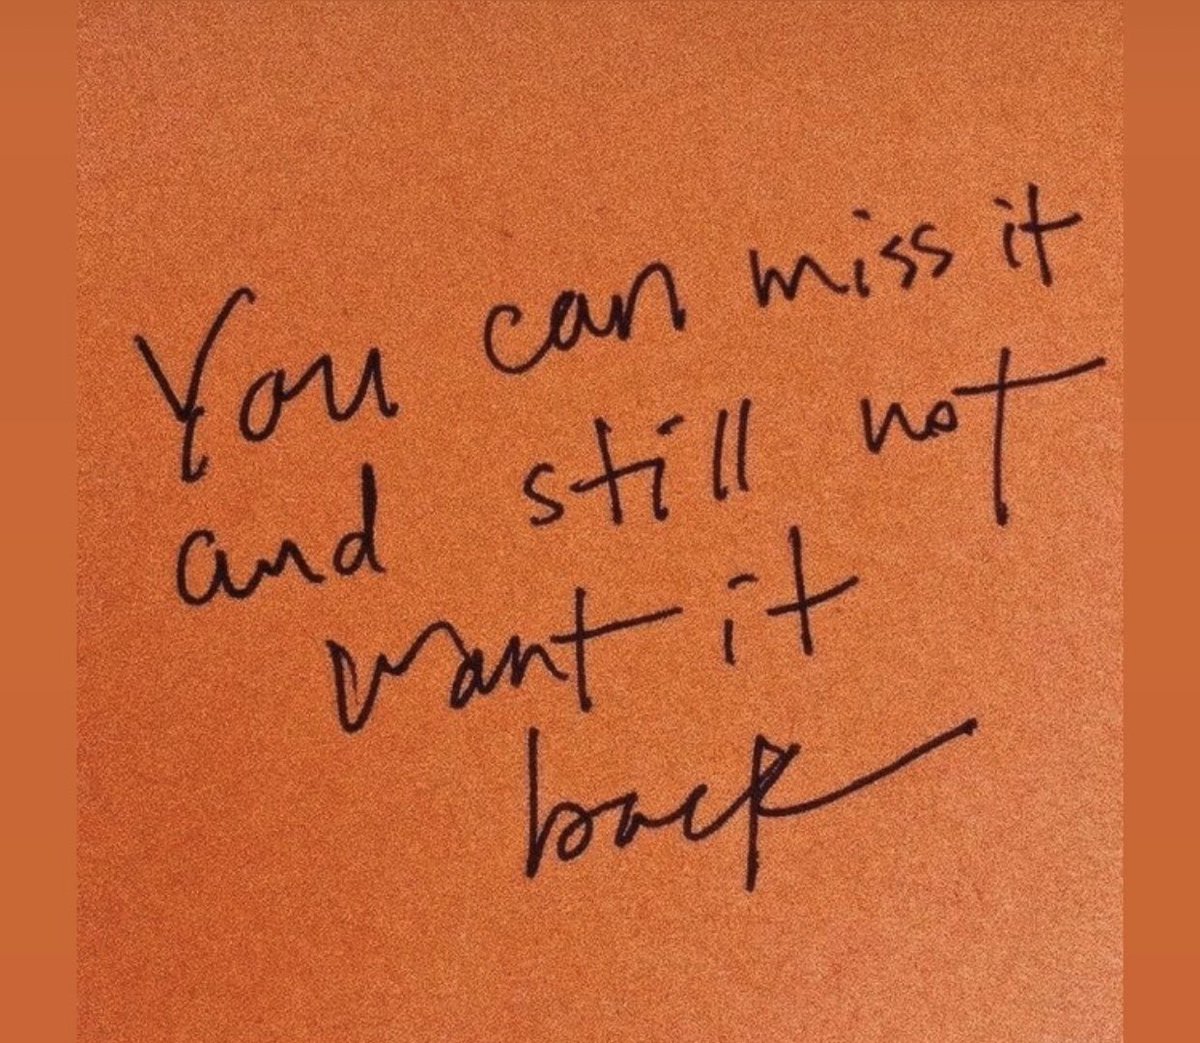 You can miss it
and still not
want it
back